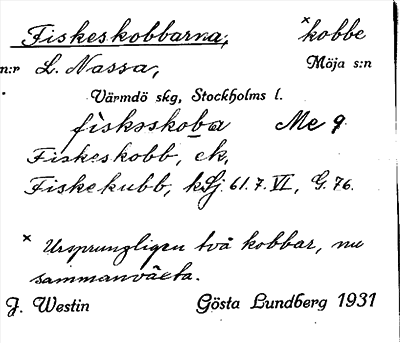 Fiskeskobbarna, ˣkobbe
n:r L. Nassa, Möja s:n
Värmdö skg, Stockholms l.
fiskəskoba Me 9
Fiskeskobb, ek,
Fiskekubb, kSj. 61.7.VI, G. 76.
× Ursprungligen två kobbar, nu
sammanväxta.
J. Westin Gösta Lundberg 1931